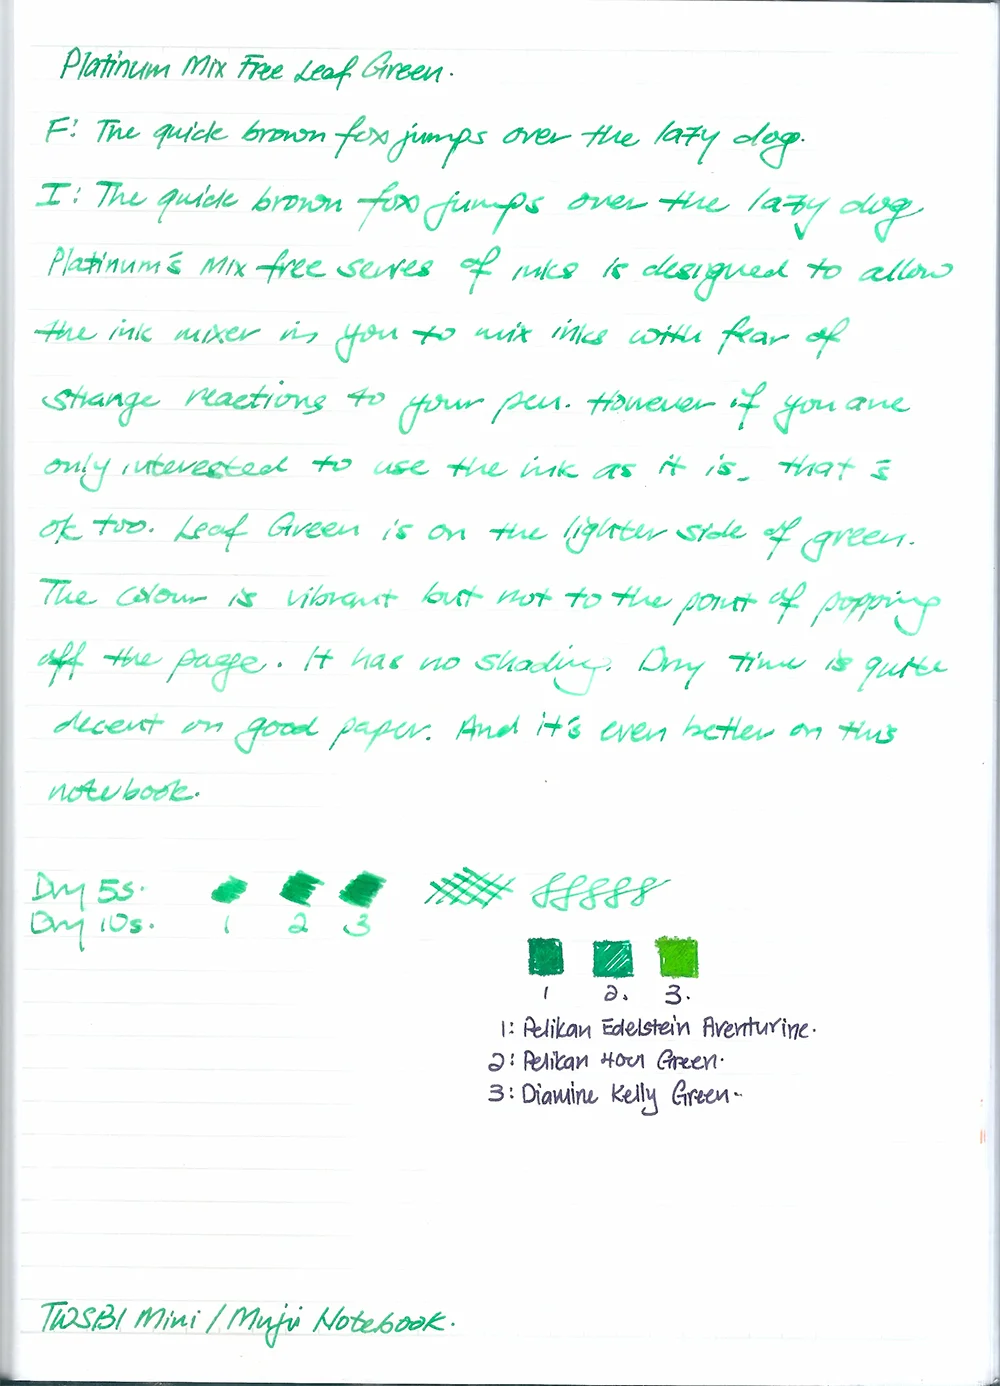 Platinum Mix Free Leaf Green.
F: The quick brown fox jumps over the lazy dog.
I: The quick brown fox jumps over the lazy dog
Platinum's Mix free series of inks is designed to allow
the ink mixer in you to mix inks with fear of
strange reactions to your pen. However if you are
only interested to use the ink as it is, that's
ok too. Leaf Green is on the lighter side of green.
The colour is vibrant but not to the point of popping
off the page. It has no shading. Dry time is quite
decent on good paper. And it's even better on this
notebook.
Dry 5s.
Dry 10s. 1 2 3
1 2. 3.
1: Pelikan Edelstein Aventurine.
2: Pelikan 4001 Green.
3: Diamine Kelly Green.
TWSBI Mini / Muji Notebook.